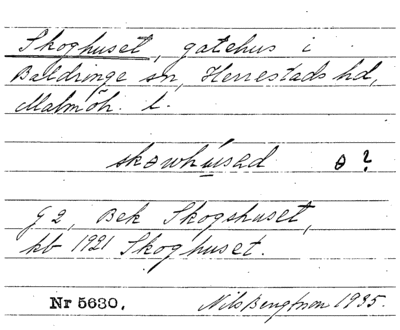 Skoghuset, gatehus i
Baldringe sn, Herrestads hd,
Malmöh. l.
skowhúsed ө ?
G 2, Bek Skogshuset,
kb 1921 Skoghuset.
Nr 5630. Nils Bengtson 1935.